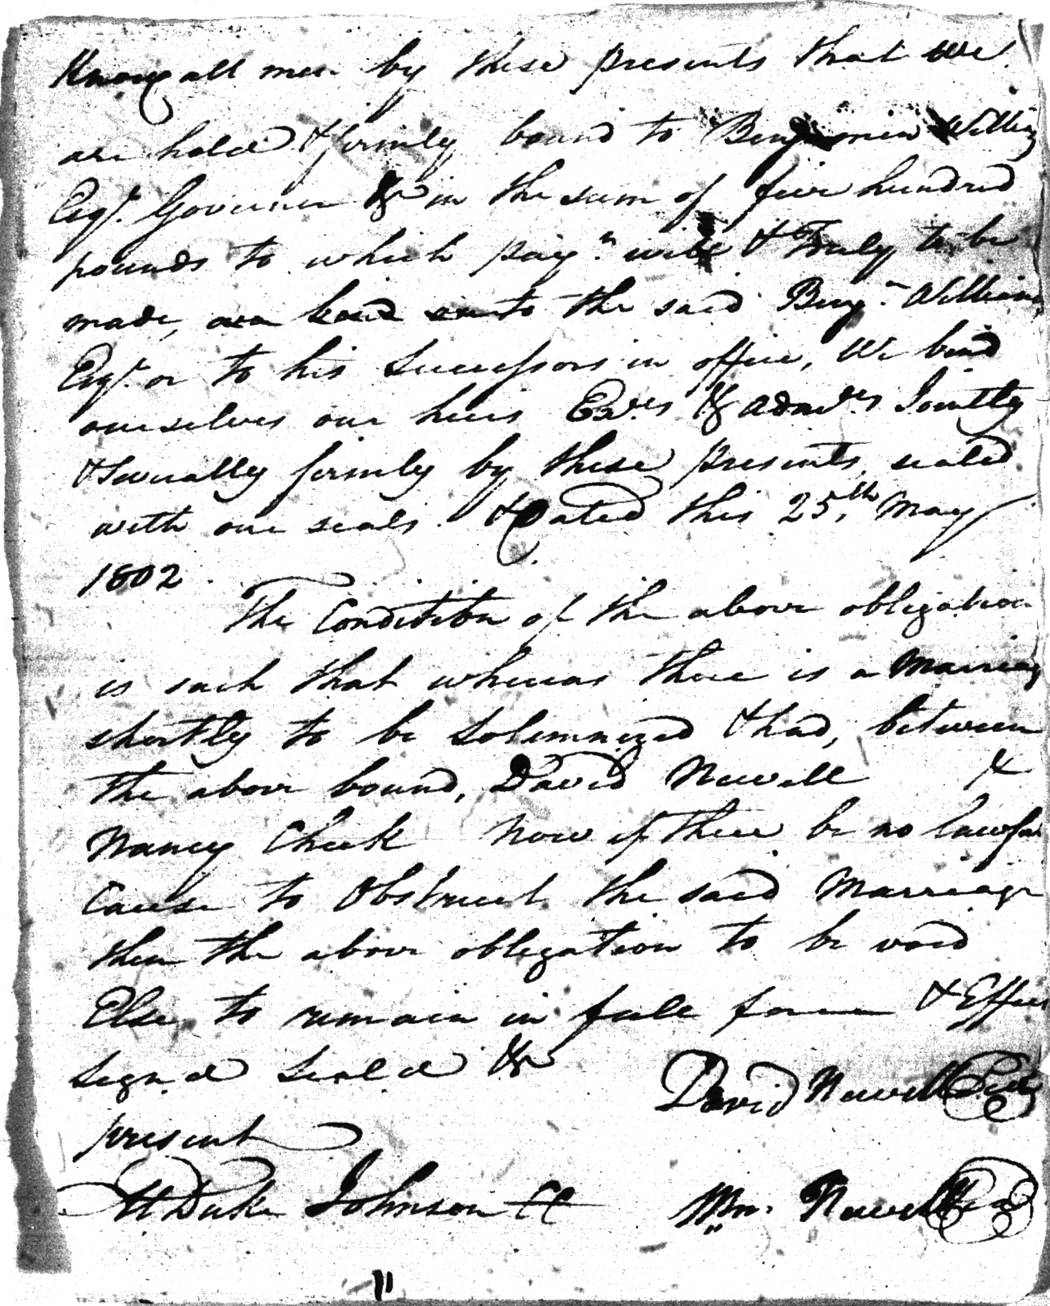 Know all men by these presents that we
are held & firmly bound to Benjamin Williams
Esqr. Governer &c in the sum of five hundred
pounds to which paymn. will & Truly to be
made, to the said Benjn. Williams
Esqr. or to his Successors in office, We bind
ourselves our heirs Exrs &c admrs Jointly
& Severally firmly by these presents, sealed
with our seals & Dated this 25th May
1802.
The Condition of the above obligation
is such that whereas there is a Marriag
shortly to be Solemnized & had, between
the above bound, David Newell &
Nancy Cheek Now if there be no lawful
Cause to Obstruct the said Marriage
then the above obligation to be void
Else to remain in full force & Effect
Signd Seald &c
present
David Newell Seal
At Duke Johnson CC
Wm. Newell Seal
11